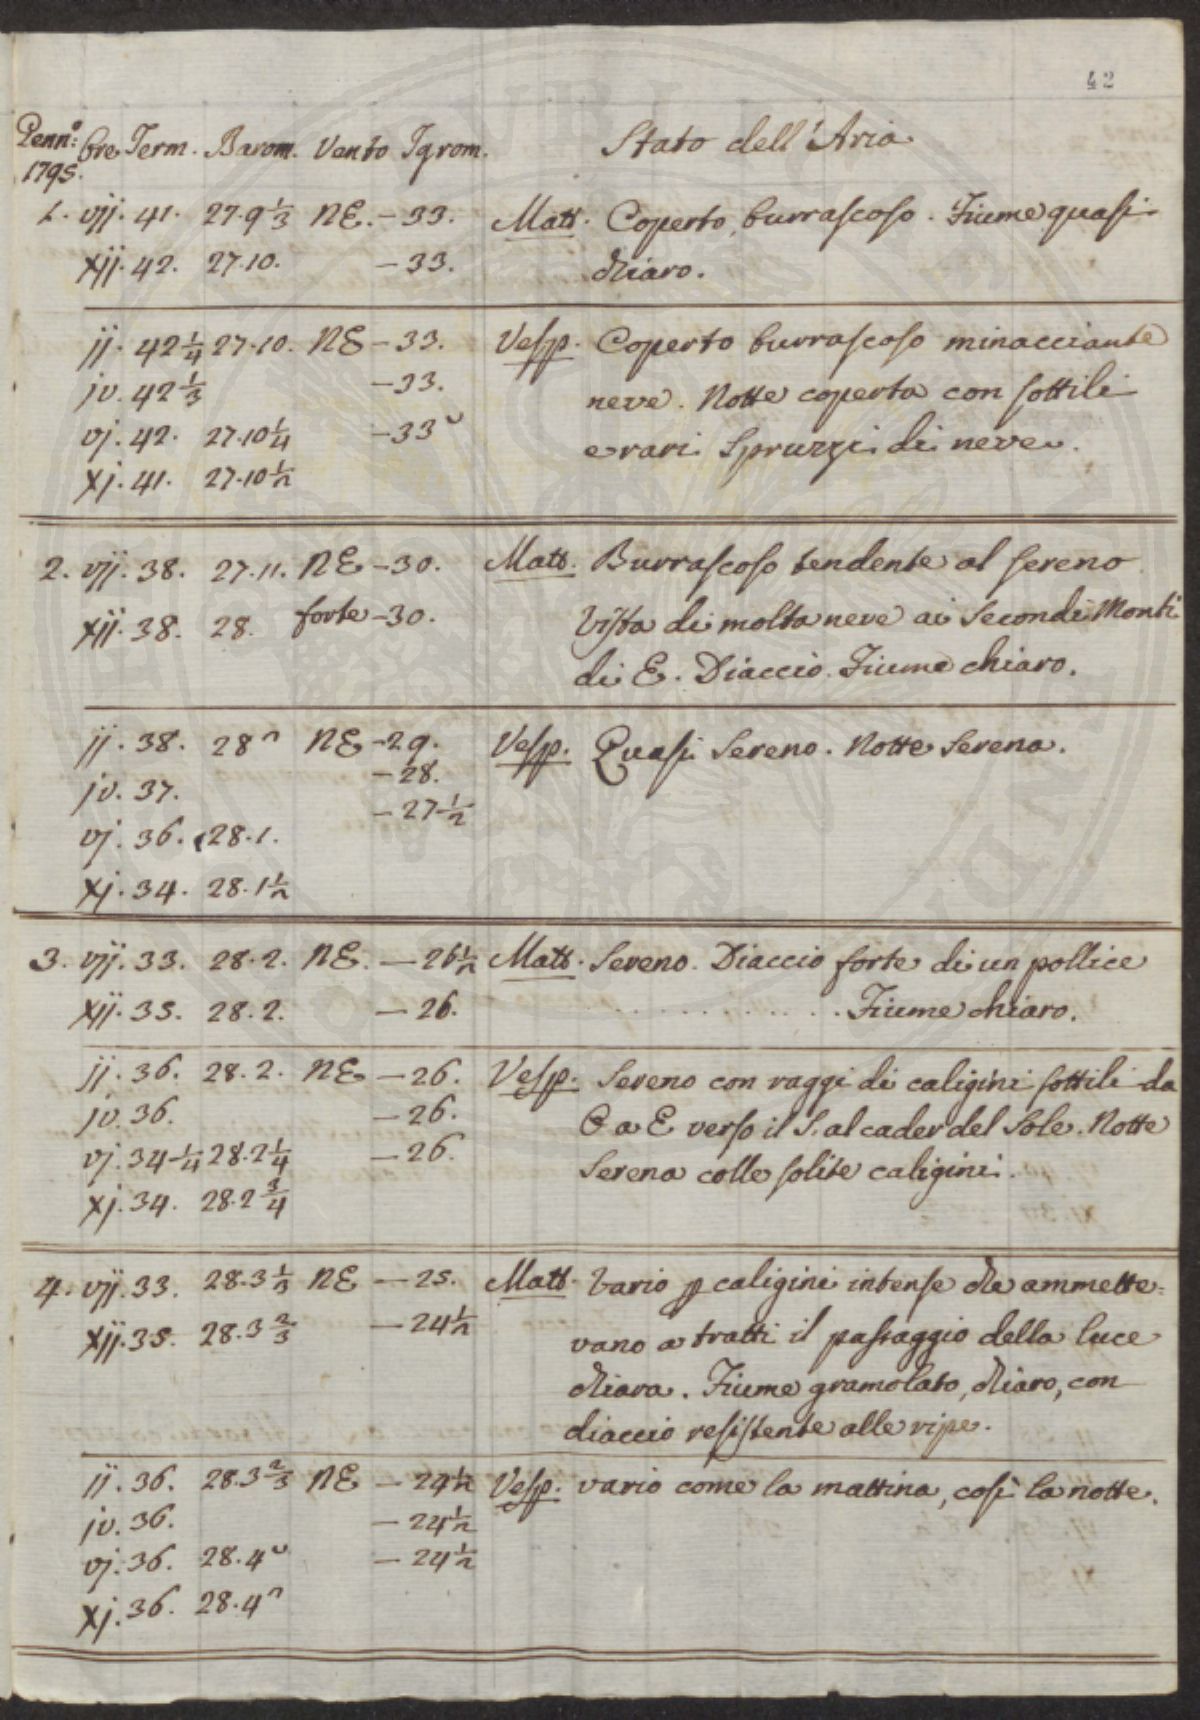 42
Genn.º Ore Term. Barom. Vento Igrom. Stato dell'Aria
1795.
1. vij. 41. 27.9 1/3 NE. - 33. Matt. Coperto, burrascoso. Fiume quasi
xij. 42. 27.10. - 33. chiaro.
ij. 42 1/4 27.10. NE - 33. Vesp. Coperto burrascoso minacciante
iv. 42 1/3 - 33. neve. Notte coperta con sottili
vj. 42. 27.10 1/4 - 33 ᵕ e rari spruzzi di neve.
xj. 41. 27.10 1/2
2. vij. 38. 27.11. NE - 30. Matt. Burrascoso tendente al sereno
xij. 38. 28. forte - 30. Vista di molta neve ai secondi Monti
di E. Diaccio. Fiume chiaro.
ij. 38. 28 ᴖ NE - 29. Vesp. Quasi sereno. Notte serena.
iv. 37. - 28.
vj. 36. 28.1. - 27 1/2
xj. 34. 28.1 1/2
3. vij. 33. 28.2. NE. - 26 1/2 Matt. Sereno. Diaccio forte di un pollice
xij. 35. 28.2. - 26. . . . . . . . . . . . Fiume chiaro.
ij. 36. 28.2. NE - 26. Vesp. Sereno con raggi di caligini sottili da
iv. 36. - 26. O a E verso il S. al cader del Sole. Notte
vj. 34 1/4 28.2 1/4 - 26. Serena colle solite caligini.
xj. 34. 28.2 3/4
4. vij. 33. 28.3 1/3 NE - 25. Matt. Vario p caligini intense che ammette=
xij. 35. 28.3 2/3 - 24 1/2 vano a tratti il passaggio della luce
chiara. Fiume gramolato, chiaro, con
diaccio resistente alle ripe.
ij. 36. 28.3 2/3 NE - 24 1/2 Vesp. vario come la mattina, così la notte.
iv. 36. - 24 1/2
vj. 36. 28.4 ᵕ - 24 1/2
xj. 36. 28.4 ᴖ